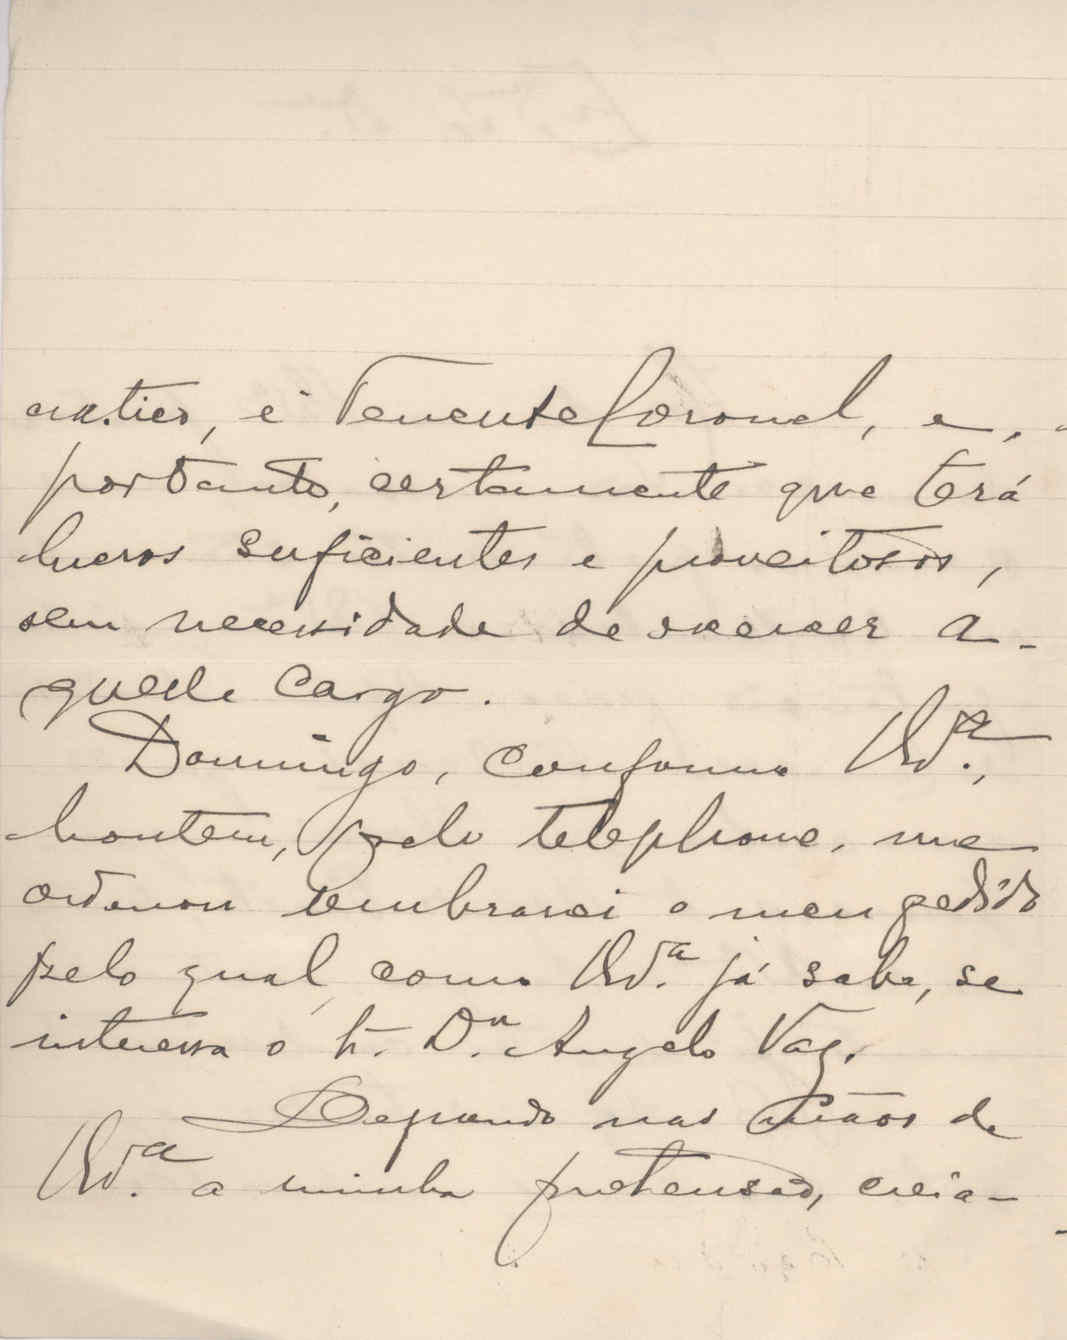 cratico, é Tenente Coronel, e,
portanto, certamente que terá
lucros suficientes e proveitosos,
sem necessidade de exercer a-
quele cargo.
Domingo, conforme V. Ex.ª,
hontem, pelo telephone, me
ordenou lembrarei o meu pedido
pelo qual, como V. Ex.ª já sabe, se
interessa o Sr. Dr. Angelo Vaz.
Depondo nas mãos de
V. Ex.ª a minha pretensão, creia-